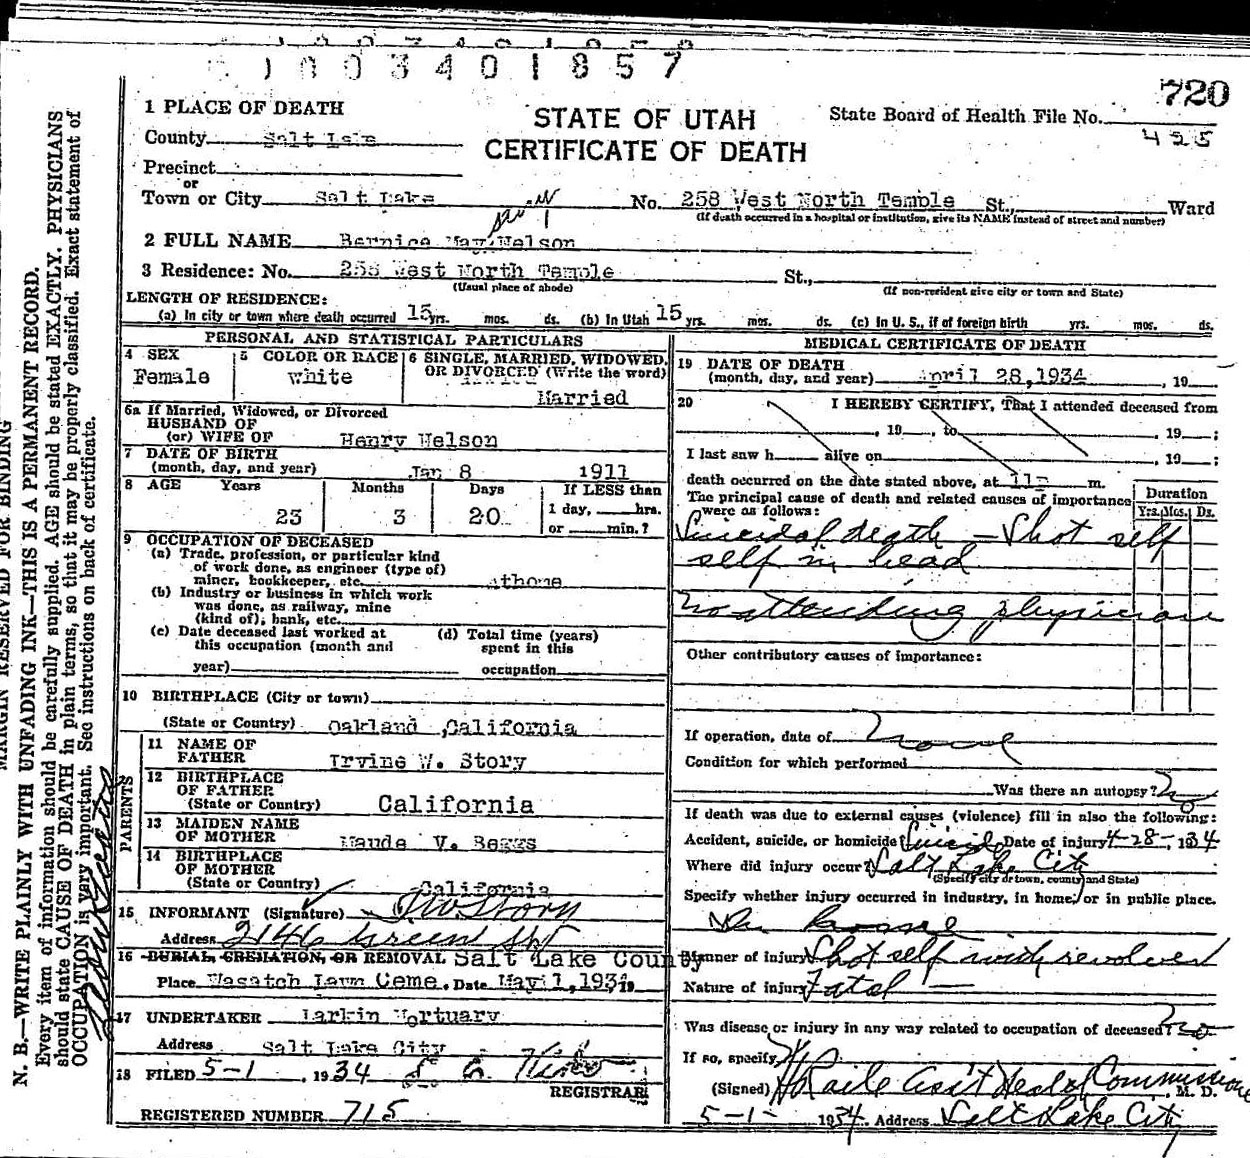 1003401857
720
1 PLACE OF DEATH
STATE OF UTAH
State Board of Health File No.
County Salt Lake
CERTIFICATE OF DEATH
425
Precinct
or
Town or City Salt Lake No. 258 West North Temple St., Ward
(If death occurred in a hospital or institution, give its NAME instead of street and number)
2 FULL NAME Bernice May Nelson
3 Residence: No. 258 West North Temple St.,
(Usual place of abode) (If non-resident give city or town and State)
LENGTH OF RESIDENCE:
(a) In city or town where death occurred 15 yrs. mos. ds. (b) In Utah 15 yrs. mos. ds. (c) In U. S., if of foreign birth yrs. mos. ds.
PERSONAL AND STATISTICAL PARTICULARS
4 SEX
Female
5 COLOR OR RACE
white
6 SINGLE, MARRIED, WIDOWED,
OR DIVORCED (Write the word)
Married
6a If Married, Widowed, or Divorced
HUSBAND OF
(or) WIFE OF Henry Nelson
7 DATE OF BIRTH
(month, day, and year) Jan 8 1911
8 AGE Years Months Days If LESS than
23 3 20 1 day, hrs.
or min.?
9 OCCUPATION OF DECEASED
(a) Trade, profession, or particular kind
of work done, as engineer (type of)
miner, bookkeeper, etc. athome
(b) Industry or business in which work
was done, as railway, mine
(kind of), bank, etc.
(c) Date deceased last worked at
this occupation (month and
year)
(d) Total time (years)
spent in this
occupation
10 BIRTHPLACE (City or town)
(State or Country) Oakland ,California
PARENTS
11 NAME OF
FATHER Irvine W. Story
12 BIRTHPLACE
OF FATHER
(State or Country) California
13 MAIDEN NAME
OF MOTHER Maude V. Beggs
14 BIRTHPLACE
OF MOTHER
(State or Country) California
15 INFORMANT (Signature) I W Story
Address 2146 Green St
16 BURIAL, CREMATION, OR REMOVAL Salt Lake County
Place Wasatch Lawn Ceme. Date May 1,1934 19
17 UNDERTAKER Larkin Mortuary
Address Salt Lake City
18 FILED 5-1, 1934
REGISTRAR
REGISTERED NUMBER 715
MEDICAL CERTIFICATE OF DEATH
19 DATE OF DEATH
(month, day, and year) April 28,1934, 19
20 I HEREBY CERTIFY, That I attended deceased from
, 19 , to , 19 ;
I last saw h alive on , 19 ;
death occurred on the date stated above, at m.
The principal cause of death and related causes of importance
were as follows:
Duration
Yrs. Mos. Ds.
Suicidal death - Shot self
self in head
No attending physician
Other contributory causes of importance:
If operation, date of None
Condition for which performed
Was there an autopsy? No
If death was due to external causes (violence) fill in also the following:
Accident, suicide, or homicide Suicide Date of injury 4-28-, 1934
Where did injury occur? Salt Lake City
(Specify city or town, county and State)
Specify whether injury occurred in industry, in home, or in public place.
In home
Manner of injury Shot self with revolver
Nature of injury Fatal
Was disease or injury in any way related to occupation of deceased? No
If so, specify
(Signed) Asst Health Commissioner M. D.
5-1- 1934. Address Salt Lake City
MARGIN RESERVED FOR BINDING
N. B.—WRITE PLAINLY WITH UNFADING INK—THIS IS A PERMANENT RECORD.
Every item of information should be carefully supplied. AGE should be stated EXACTLY. PHYSICIANS
should state CAUSE OF DEATH in plain terms, so that it may be properly classified. Exact statement of
OCCUPATION is very important. See instructions on back of certificate.